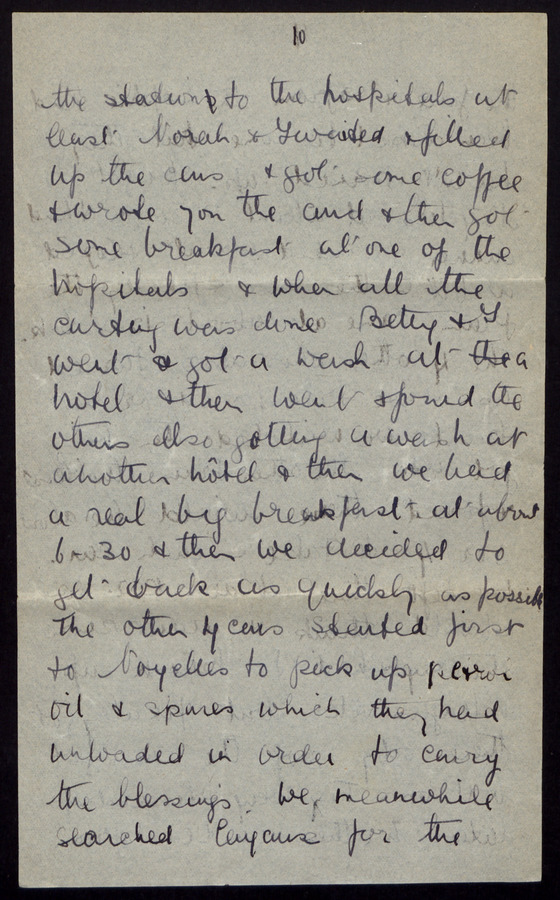 10
the station to the hospitals at
least Norah & I waited & filled
up the cars & got some coffee
& wrote you the card & then got
some breakfast at one of the
hospitals & when all the
carting was done Betty & I
went & got a wash at the a
hotel & then went & found the
others also getting a wash at
another hôtel & then we had
a real big breakfast at about
6-30 & then we decided to
get back as quickly as possible
The other 4 cars started first
to Noyelles to pick up petrol
oil & spares which they had
unloaded in order to carry
the blessings. We, meanwhile
searched for the